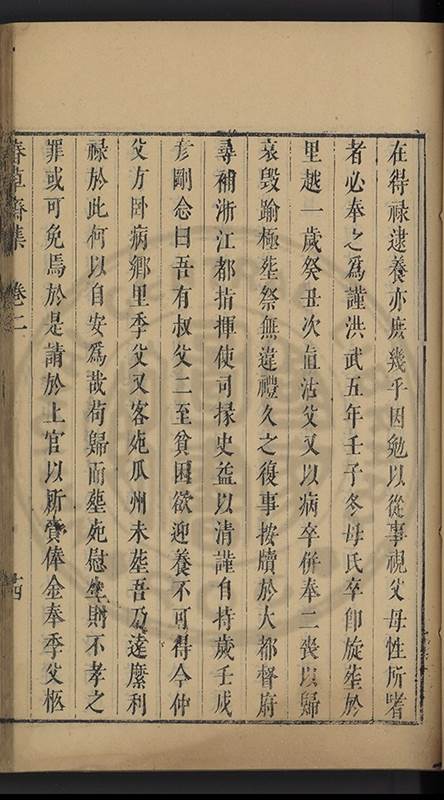 在得祿逮養亦庶幾乎因勉以從事視父母性所嗜
者必奉之爲謹洪武五年壬子冬母氏卒卽旋塟於
里越一歲癸丑次直沽父又以病卒併奉二喪以歸
哀毀踰極塟祭無違禮久之復事按牘於大都督府
尋補浙江都指揮使司掾史益以清謹自持歲壬戌
彥剛念曰吾有叔父二至貧困欲迎養不可得今仲
父方卧病鄉里季父又客死瓜州未塟吾乃遠縻利
祿於此何以自安爲哉苟歸而塟死慰生則不孝之
罪或可免焉於是請於上官以所賞俸金奉季父柩
春草齋集 卷二 十四